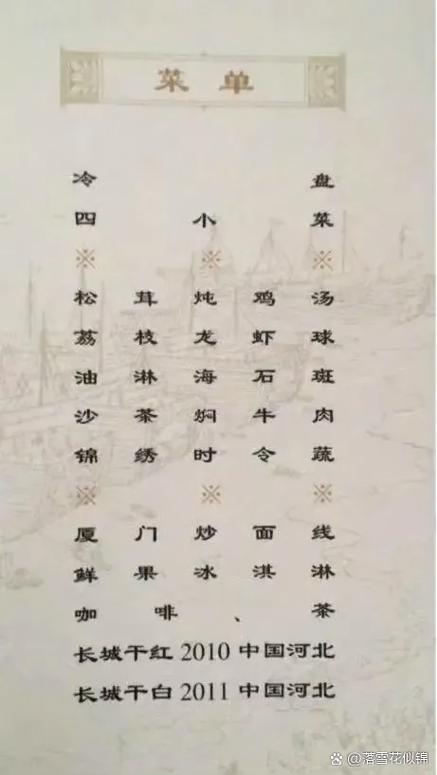 菜单
冷盘
四小菜
※ ※ ※
松茸炖鸡汤
荔枝龙虾球
油淋海石斑
沙茶焖牛肉
锦绣时令蔬
※ ※ ※
厦门炒面线
鲜果冰淇淋
咖啡、茶
长城干红 2010 中国河北
长城干白 2011 中国河北
@落雪花似锦